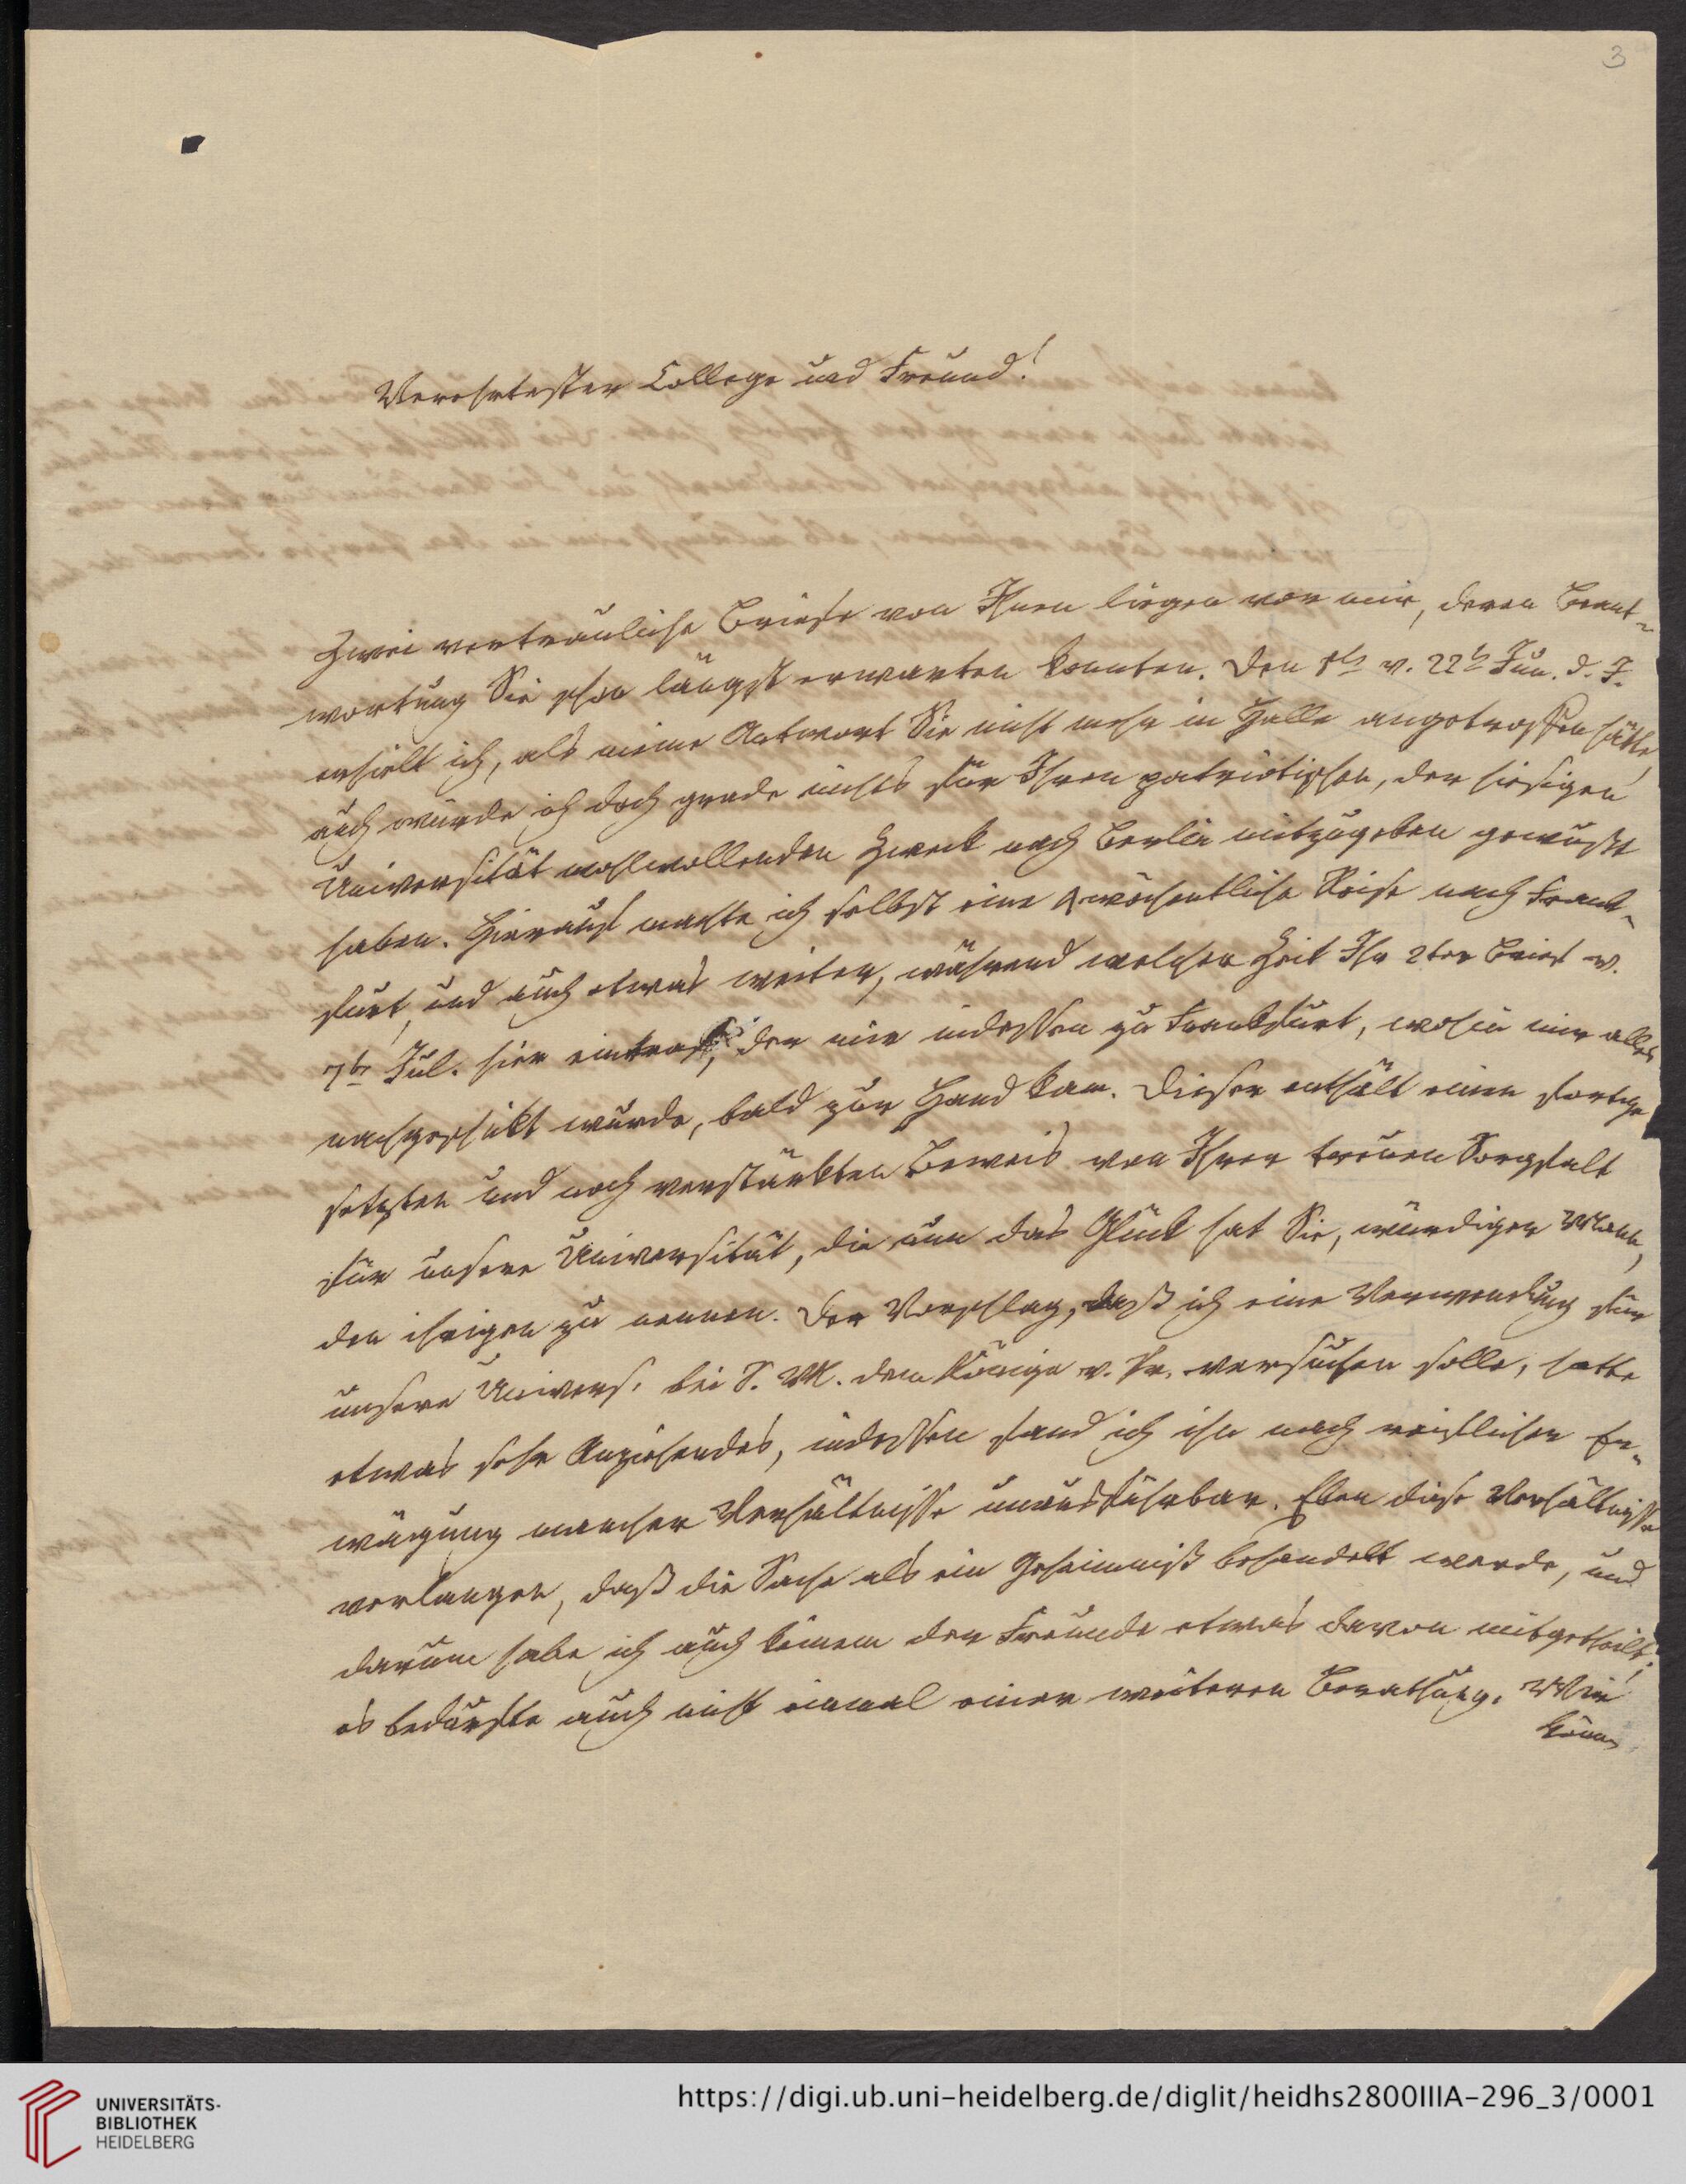 3
Verehrtester College und Freund!
Zwei vertrauliche Briefe von Ihnen liegen vor mir, deren Beant-
wortung Sie schon längst erwarten konnten. Den 1ten v. 22ten Jun. d. J.
erhielt ich, als meine Antwort Sie nicht mehr in Halle angetroffen hätte,
auch würde ich doch grade nichts für Ihren patriotischen, der hiesigen
Universität wohlwollenden Zweck nach Berlin mitzugeben gewußt
haben. Hierauf machte ich selbst eine 4wöchentliche Reise nach Frank-
furt, und auch etwas weiter, während welcher Zeit Ihr 2ter Brief v.
7ten Jul. hier eintraf, der mir indessen zu Frankfurt, wohin mir alles
nachgeschikt wurde, bald zur Hand kam. Dieser enthält einen fortge-
setzten und noch verstärkten Beweis von Ihrer treuen Sorgfalt
für unsere Universität, die nun das Glück hat Sie, würdiger Mann,
den ihrigen zu nennen. Der Vorschlag, daß ich eine Verwendung für
unsere Univers. bei S. M. dem Könige v. Pr. versuchen solle, hatte
etwas sehr Anziehendes, indessen fand ich ihn nach reiflicher Er-
wägung mancher Verhältnisse unausführbar. Eben diese Verhältnisse
verlangen, daß die Sache als ein Geheimniß behandelt werde, und
darum habe ich auch keinem der Freunde etwas davon mitgetheilt;
es bedurfte auch nicht einmal einer weiteren Berathung. Wir
könn-
UNIVERSITÄTS-
BIBLIOTHEK
HEIDELBERG
https://digi.ub.uni-heidelberg.de/diglit/heidhs2800IIIA-296_3/0001